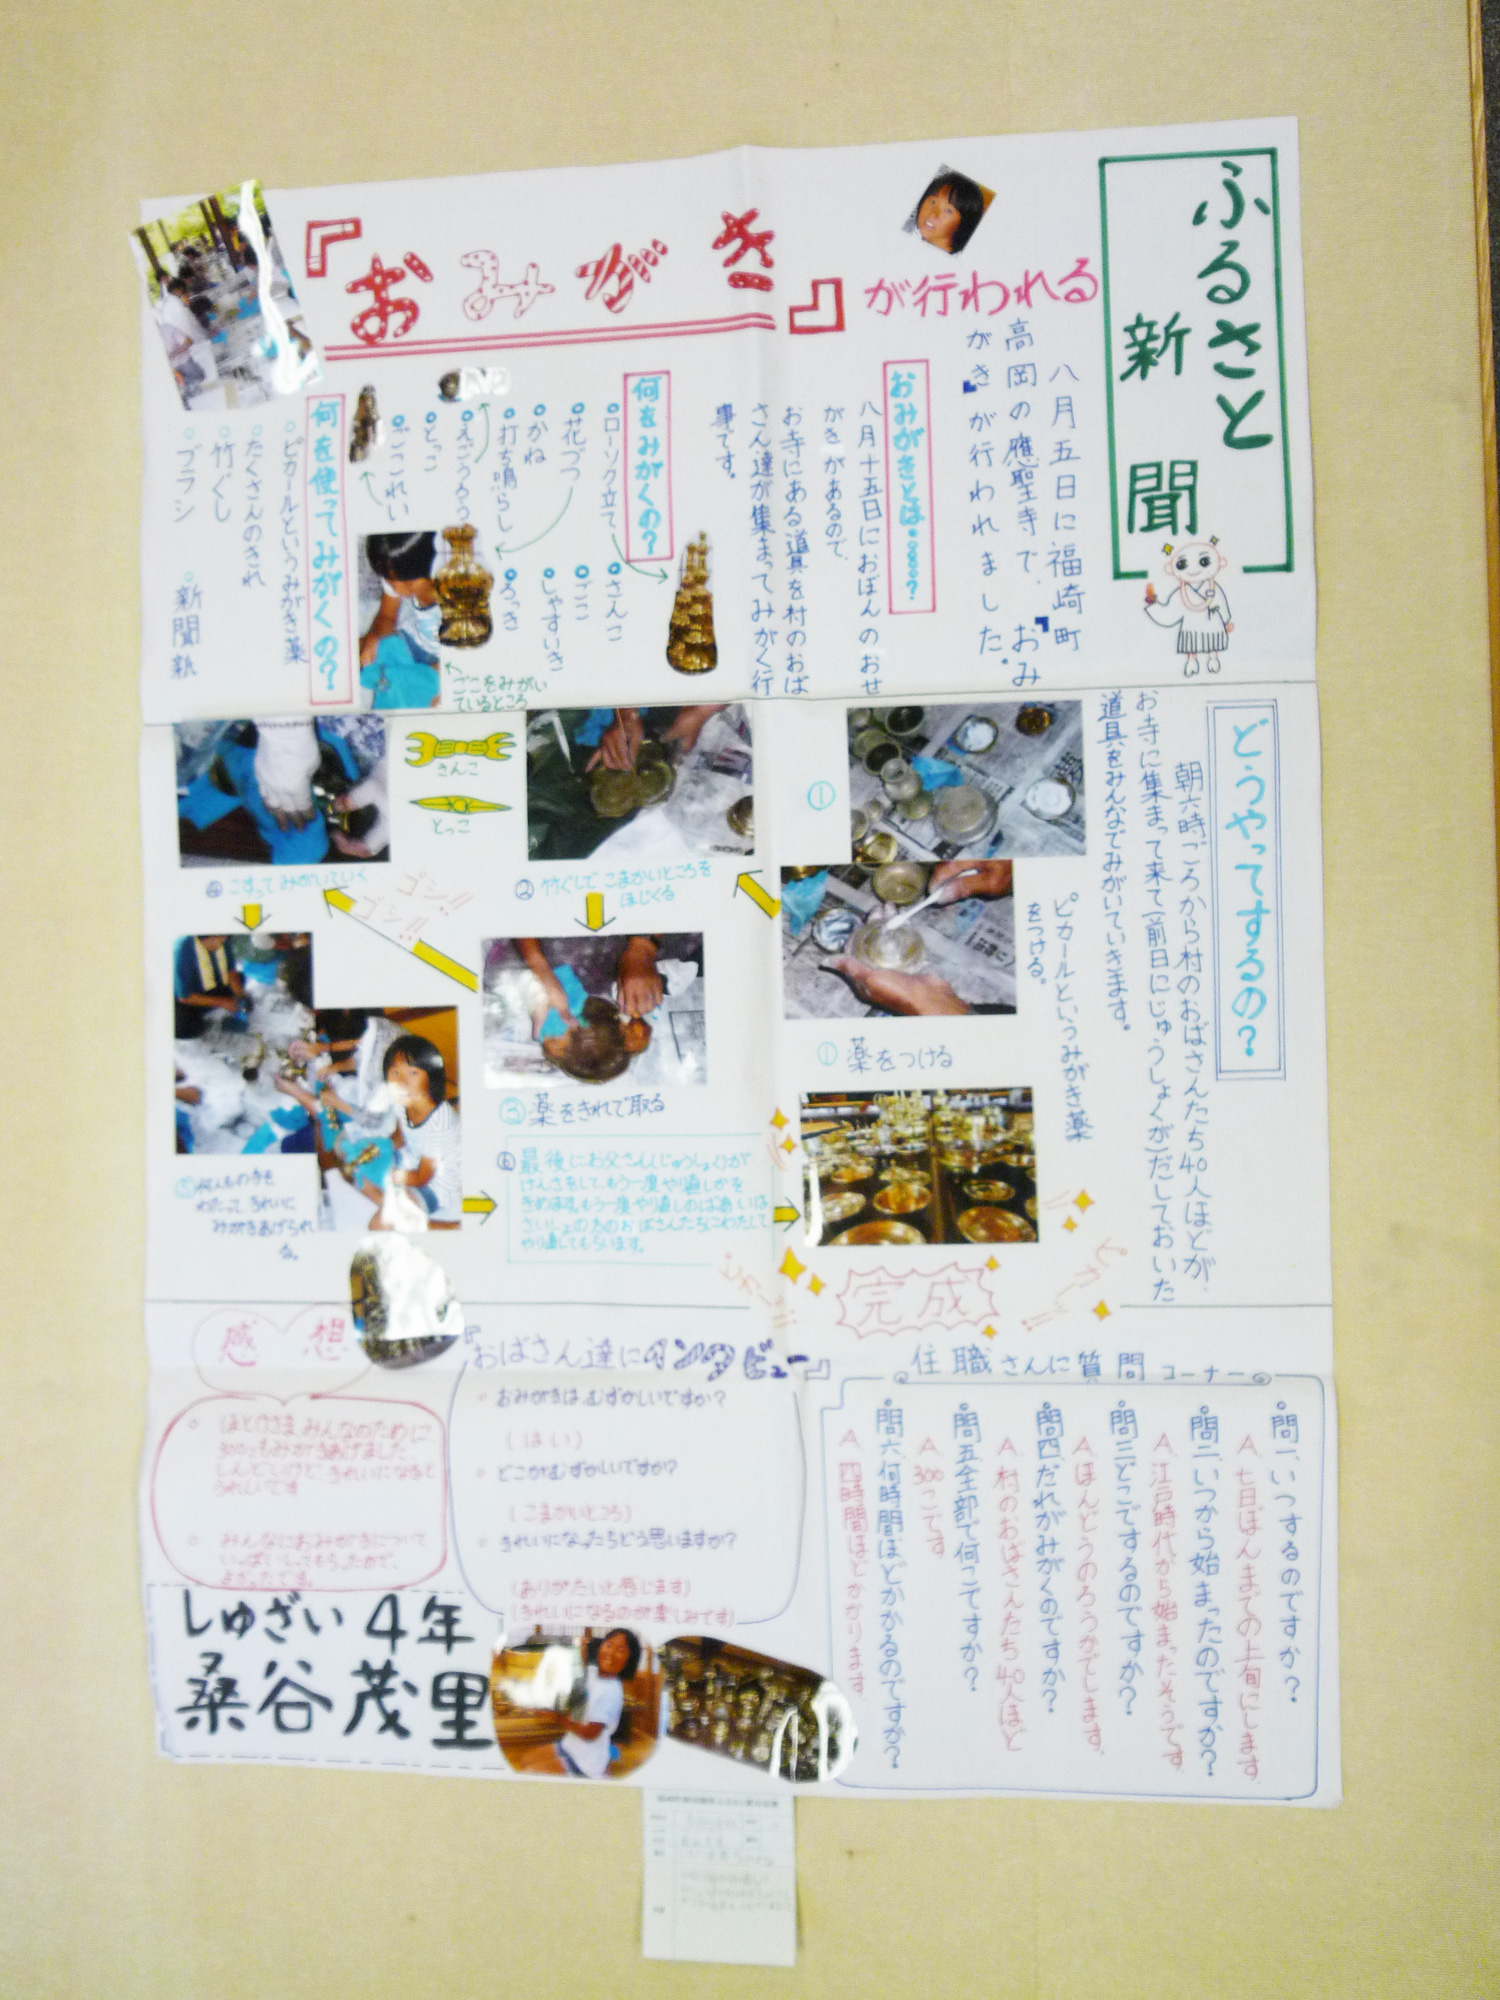 ふるさと
新聞
『おみがき』が行われる
八月五日に福崎町
高岡の應聖寺で、『おみ
がき』が行われました。
おみがきとは……?
八月十五日におぼんのおせ
がきがあるので、
お寺にある道具を村のおば
さん達が集まってみがく行
事です。
何をみがくの?
ローソク立て
花づつ
かね
打ち鳴らし
えごうろう
とっこ
ごこれい
さんこ
ごこ
しゃすいき
ろっき
ごこをみがい
ているところ
何を使ってみがくの?
ピカールというみがき薬
たくさんのきれ
竹ぐし
ブラシ
新聞紙
どうやってするの?
朝六時ごろから村のおばさんたち40人ほどが、
お寺に集まって来て(前日にじゅうしょくが)だしておいた
道具をみんなでみがいていきます。
①
ピカールというみがき薬
をつける。
①薬をつける
②竹ぐしでこまかいところを
ほじくる
さんこ
とっこ
③薬をきれで取る
④こすってみがいていく
ゴシ!!
ゴシ!!
⑤何人もの手を
わたって、きれいに
みがきあげられ
る。
⑥最後にお父さん(じゅうしょく)が
けんさをして、もう一度やり直しかを
きめます。もう一度やり直しのばあいは
さいしょの方のおばさんたちにわたして
やり直してもらいます。
完成
住職さんに質問コーナー
問一、いつするのですか?
A 七日ぼんまでの上旬にします
問二、いつから始まったのですか?
A 江戸時代から始まったそうです
問三、どこでするのですか?
A ほんどうのろうかでします。
問四、だれがみがくのですか?
A 村のおばさんたち40人ほど
問五、全部で何こですか?
A 300こです
問六、何時間ほどかかるのですか?
A 四時間ほどかかります
『おばさん達にインタビュー』
おみがきは、むずかしいですか?
(はい)
どこがむずかしいですか?
(こまかいところ)
きれいになったらどう思いますか?
(ありがたいと感じます)
(きれいになるのが楽しみです)
感想
ほとけさま みんなのために
300こもみがきあげました
しんどいけど、きれいになると
うれしいです
みんなにおみがきについて
いっぱいしってもらったので、
よかったです。
しゅざい 4年
桑谷茂里